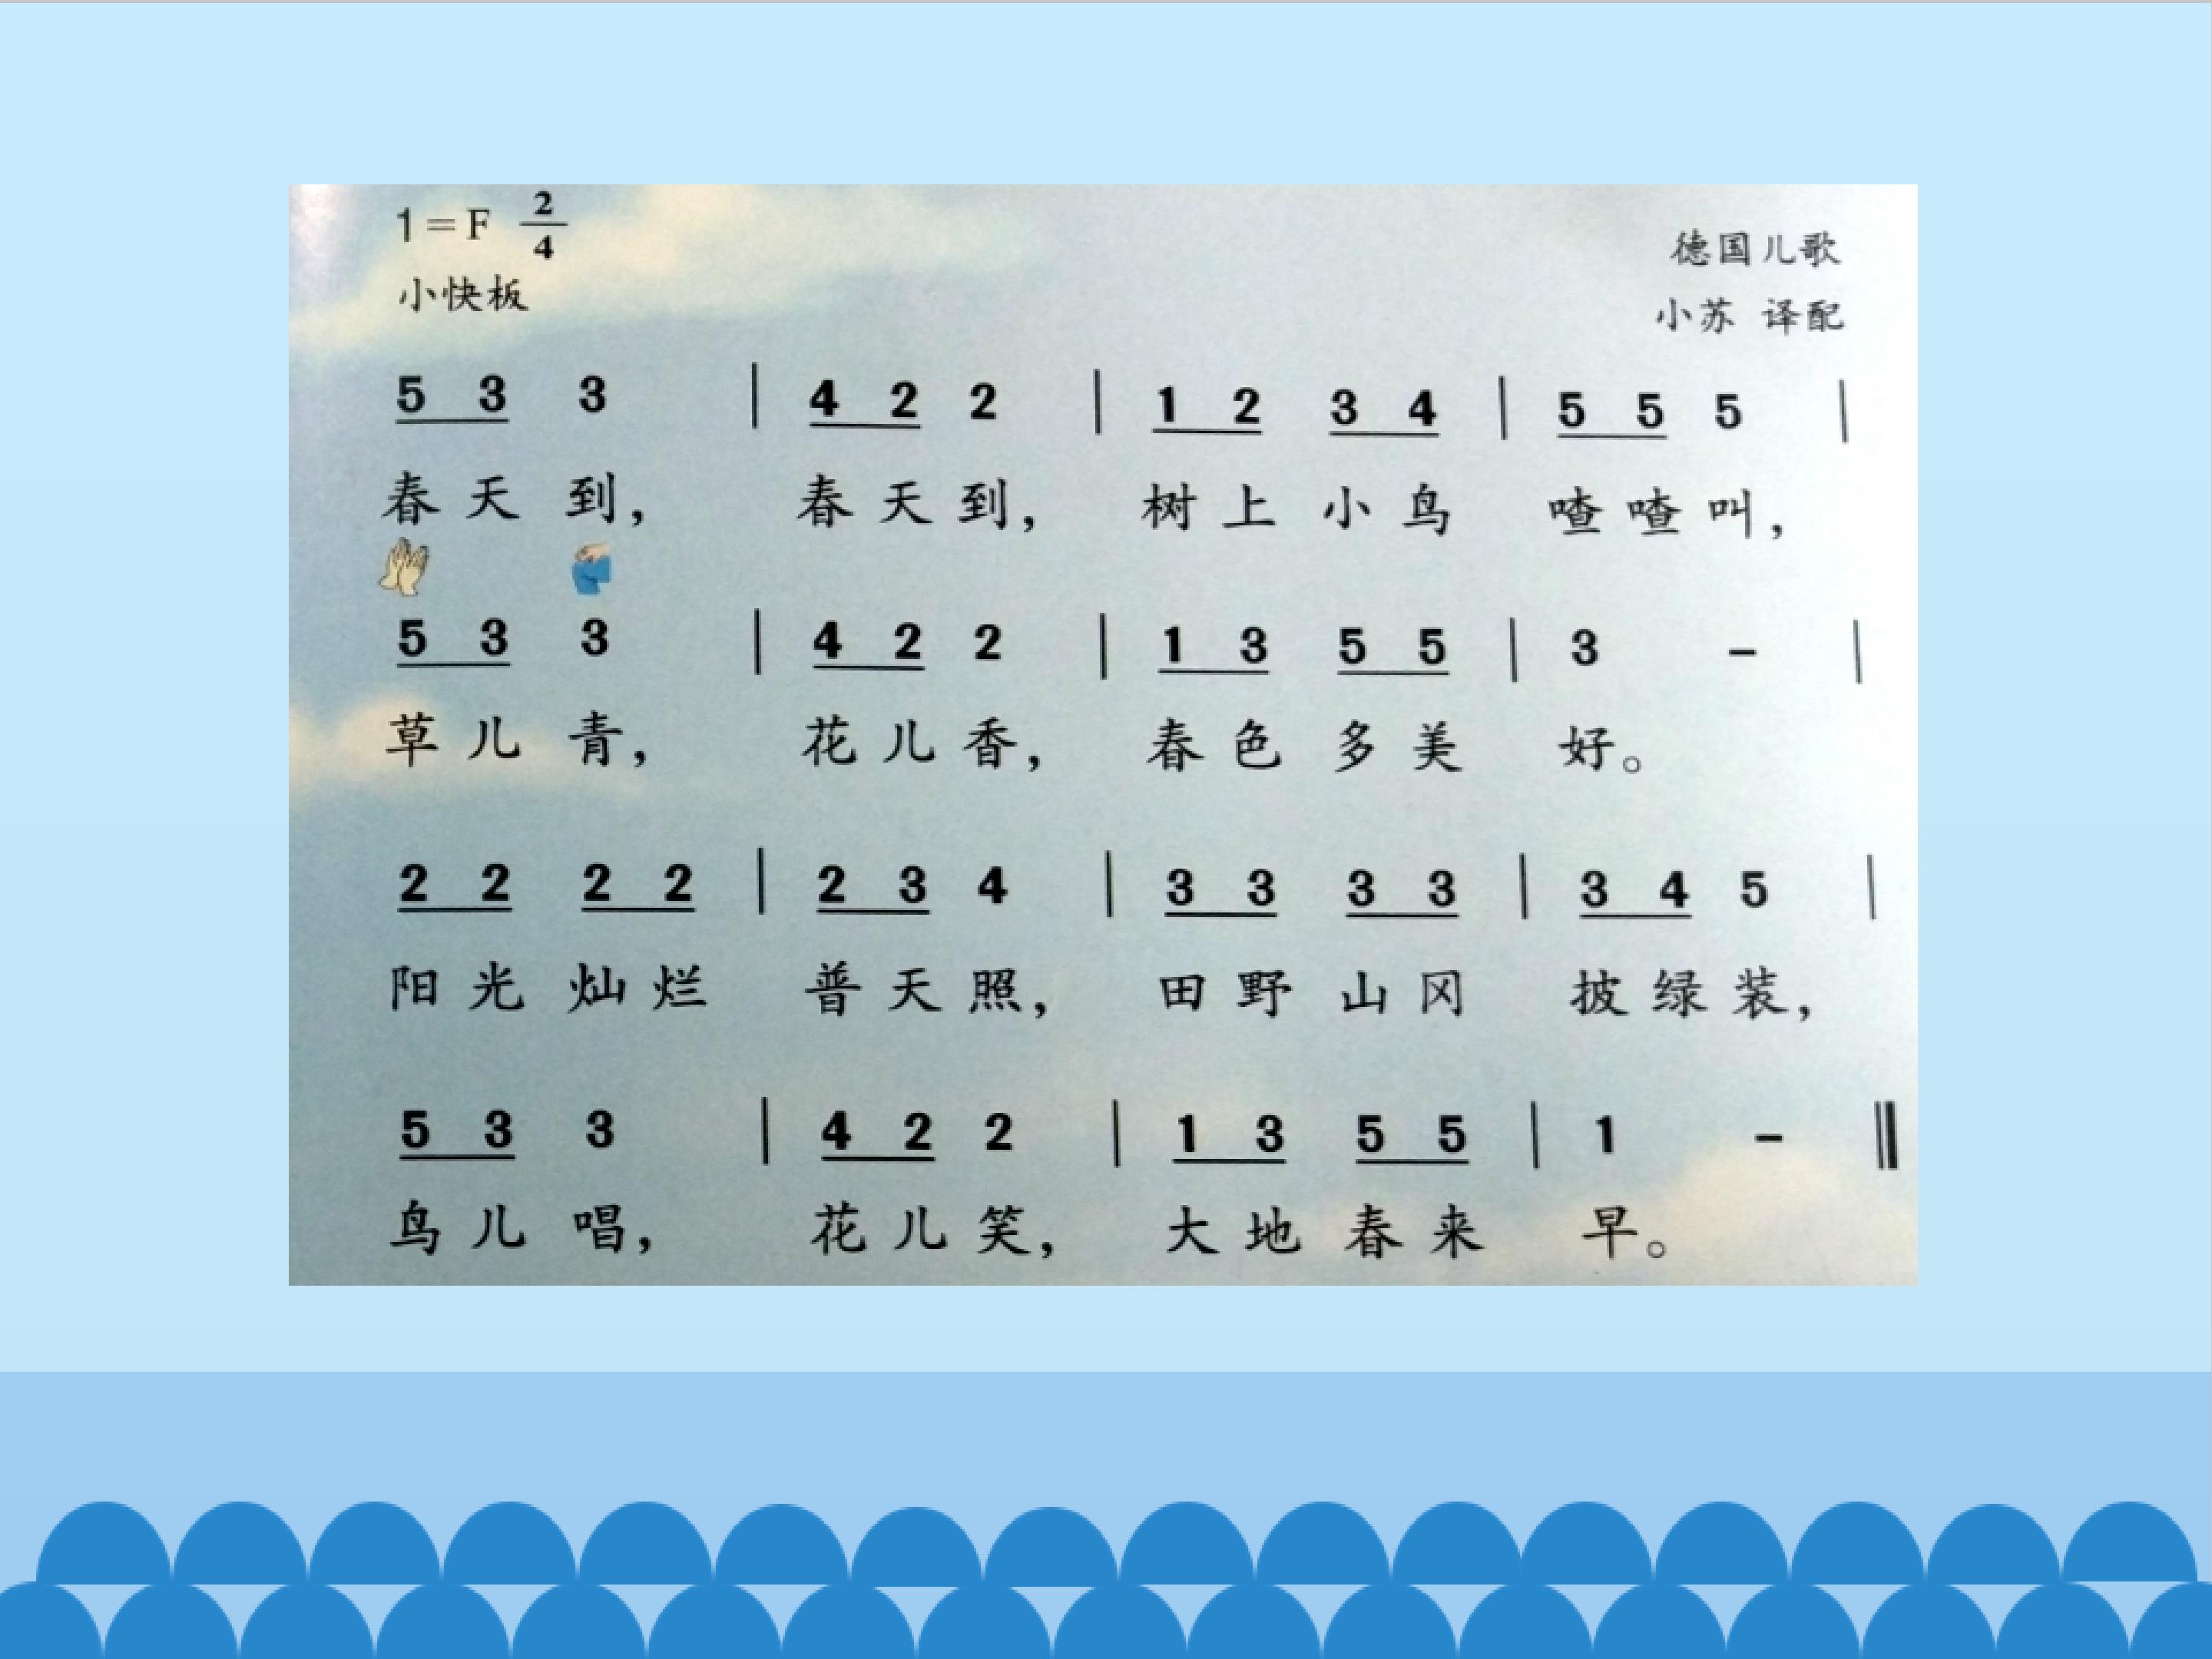 1=F 2/4
德国儿歌
小快板
小苏 译配
5 3 3 | 4 2 2 | 1 2 3 4 | 5 5 5 |
春天到， 春天到， 树上小鸟 喳喳叫，
5 3 3 | 4 2 2 | 1 3 5 5 | 3 - |
草儿青， 花儿香， 春色多美 好。
2 2 2 2 | 2 3 4 | 3 3 3 3 | 3 4 5 |
阳光灿烂 普天照， 田野山冈 披绿装，
5 3 3 | 4 2 2 | 1 3 5 5 | 1 - ‖
鸟儿唱， 花儿笑， 大地春来 早。